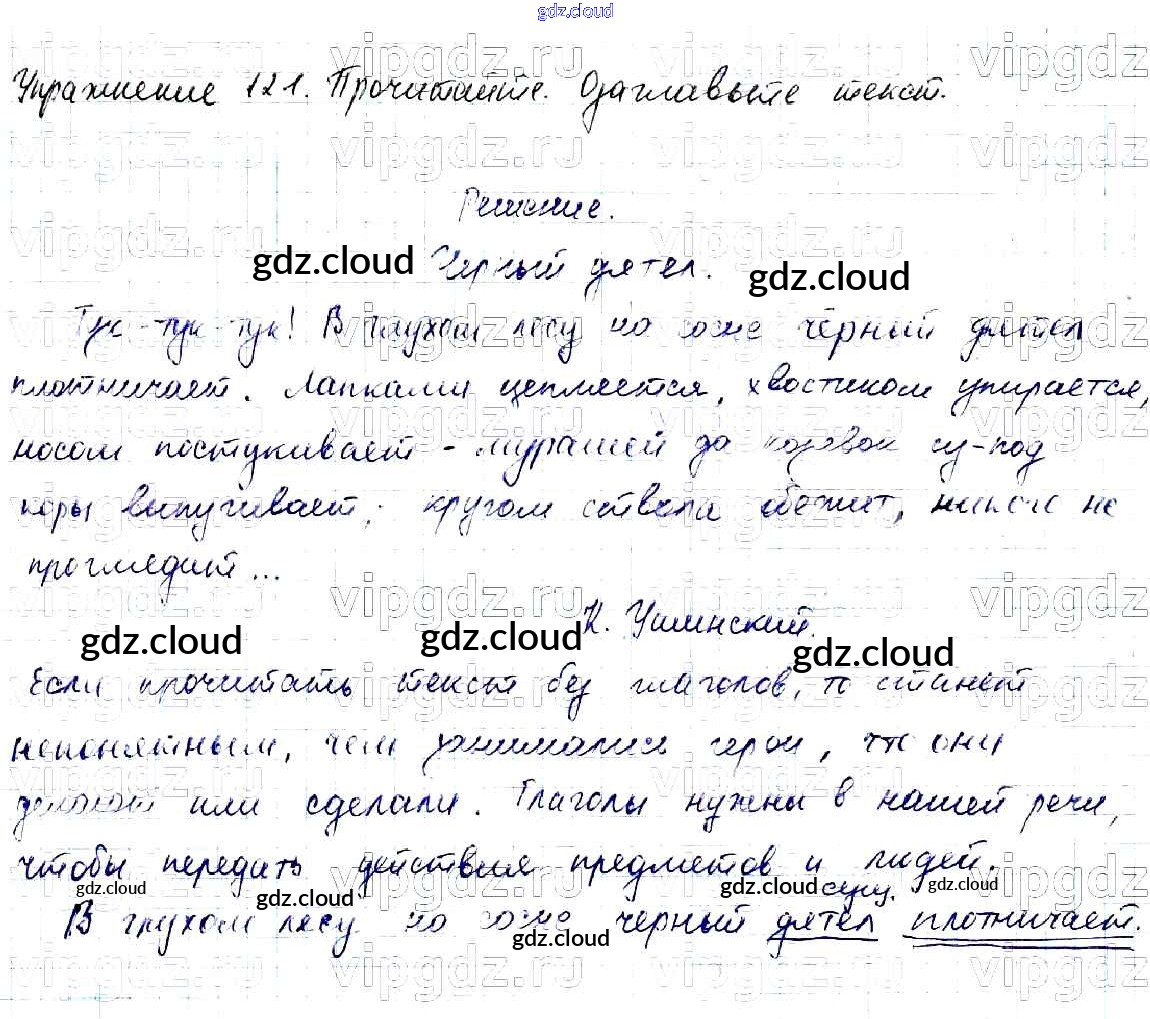 gdz.cloud
Упражнение 121. Прочитайте. Озаглавьте текст.
Решение.
gdz.cloud Черный дятел. gdz.cloud
Тук-тук-тук! В глухом лесу на сосне чёрный дятел
плотничает. Лапками цепляется, хвостиком упирается,
носом постукивает - мурашей да козявок из-под
коры выпугивает; кругом ствола обежит, никого не
проглядит...
К. Ушинский.
gdz.cloud gdz.cloud gdz.cloud
Если прочитать текст без глаголов, то станет
непонятным, чем занимались герои, что они
делают или сделали. Глаголы нужны в нашей речи,
чтобы передать действия предметов и людей.
gdz.cloud gdz.cloud gdz.cloud сущ. gdz.cloud
В глухом лесу на сосне черный дятел плотничает.
gdz.cloud gdz.cloud gdz.cloud
vipgdz.ru vipgdz.ru vipgdz.ru vipgdz.ru